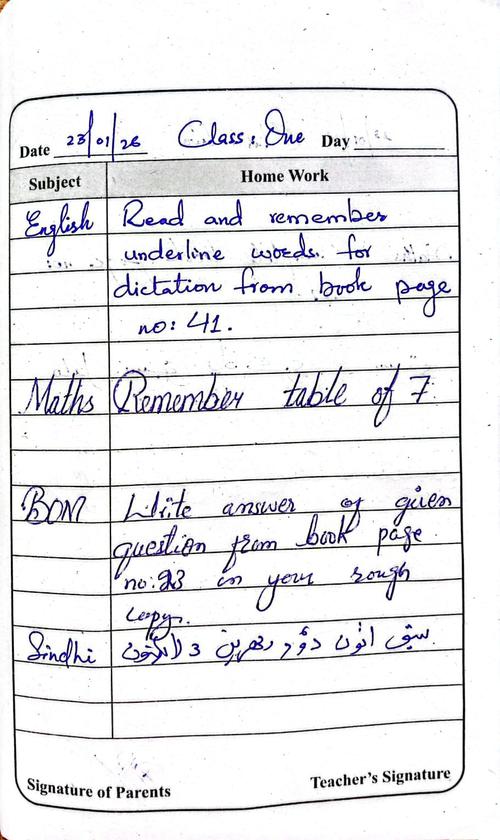 Date 23/01/26 Class: One Day
Subject Home Work
English Read and remember
underline words. for
dictation from book page
no: 41.
Maths Remember table of 7
BOM Write answer of given
question from book page
no: 23 in your rough
copy.
Sindhi سبق
Signature of Parents Teacher's Signature